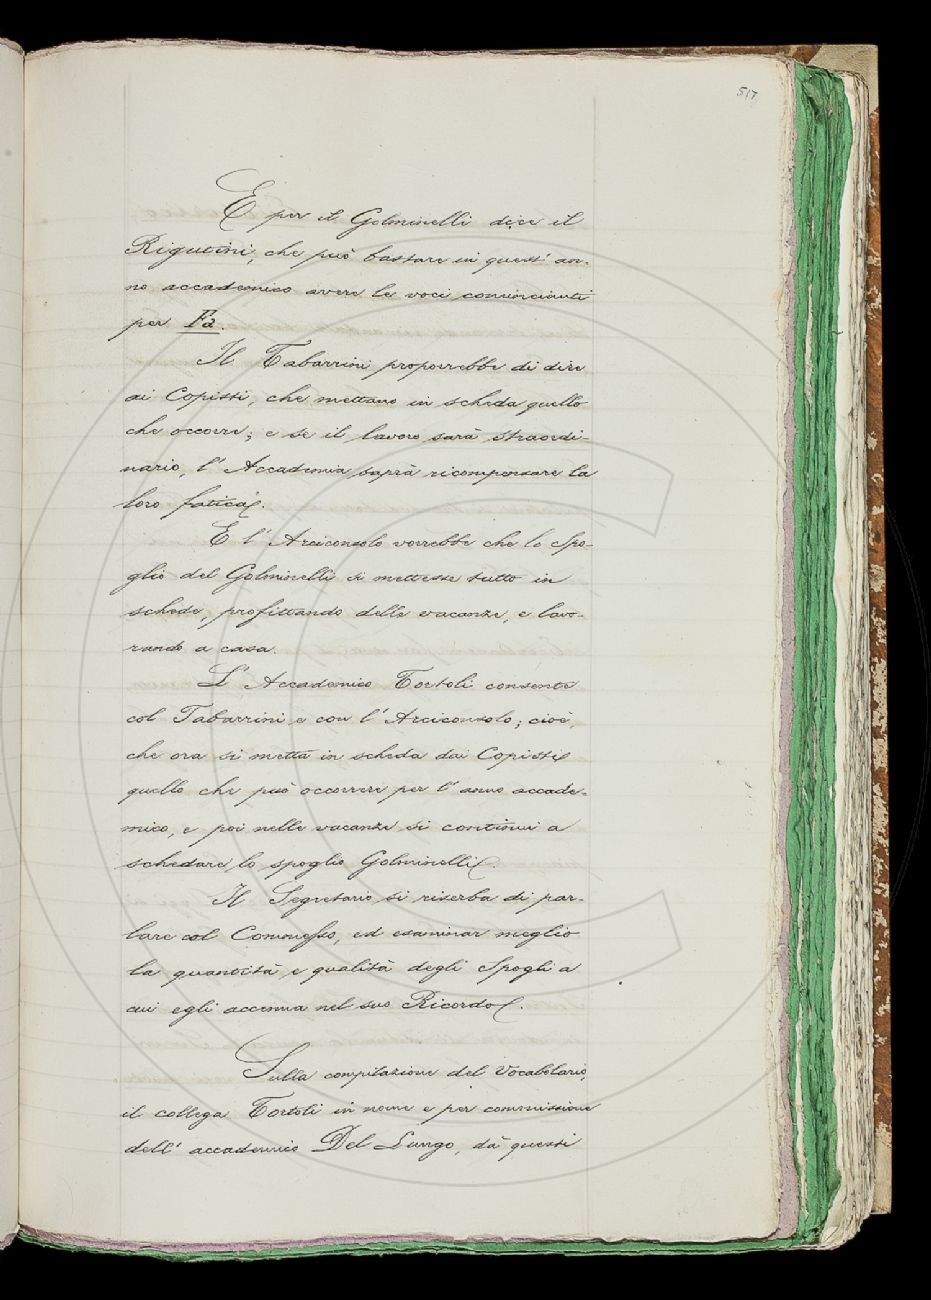 517
E per il Golminelli dice il
Rigutini, che può bastare in quest' an-
no accademico avere le voci comincianti
per Fa.
Il Tabarrini proporrebbe di dire
ai Copisti, che mettano in scheda quello
che occorre; e se il lavoro sarà straordi-
nario, l' Accademia saprà ricompensare la
loro fatica.
E l' Arciconsolo vorrebbe che lo Spo-
glio del Golminelli si mettesse tutto in
schede, profittando delle vacanze, e lavo-
rando a casa.
L' Accademico Tortoli consente
col Tabarrini e con l' Arciconsolo; cioè,
che ora si metta in scheda dai Copisti
quello che può occorrere per l' anno accade-
mico, e poi nelle vacanze si continui a
schedare lo spoglio Golminelli.
Il Segretario si riserba di par-
lare col Commesso, ed esaminar meglio
la quantità e qualità degli Spogli a
cui egli accenna nel suo Ricordo.
Sulla compilazione del Vocabolario,
il collega Tortoli in nome e per commissione
dell' accademico Del Lungo, dà questi